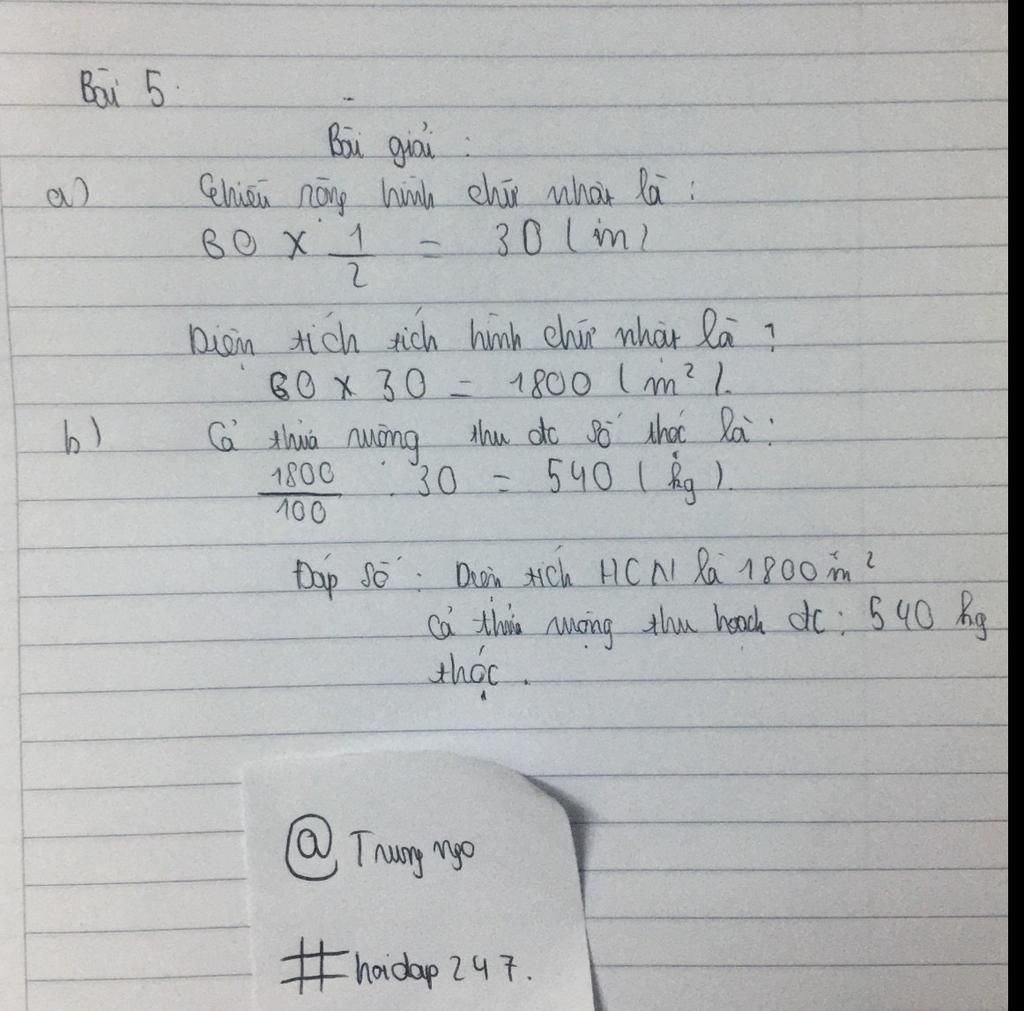 Bài 5.
Bài giải :
a) Chiều rộng hình chữ nhật là :
60 x 1/2 = 30 (m)
Diện tích tích hình chữ nhật là :
60 x 30 = 1800 (m²).
b) Cả thửa ruộng thu đc số thóc là :
1800/100 . 30 = 540 (kg).
Đáp số : Diện tích HCN là 1800 m²
Cả thửa ruộng thu hoạch đc : 540 kg
thóc.
@ Trung ngo
#hoidap247.